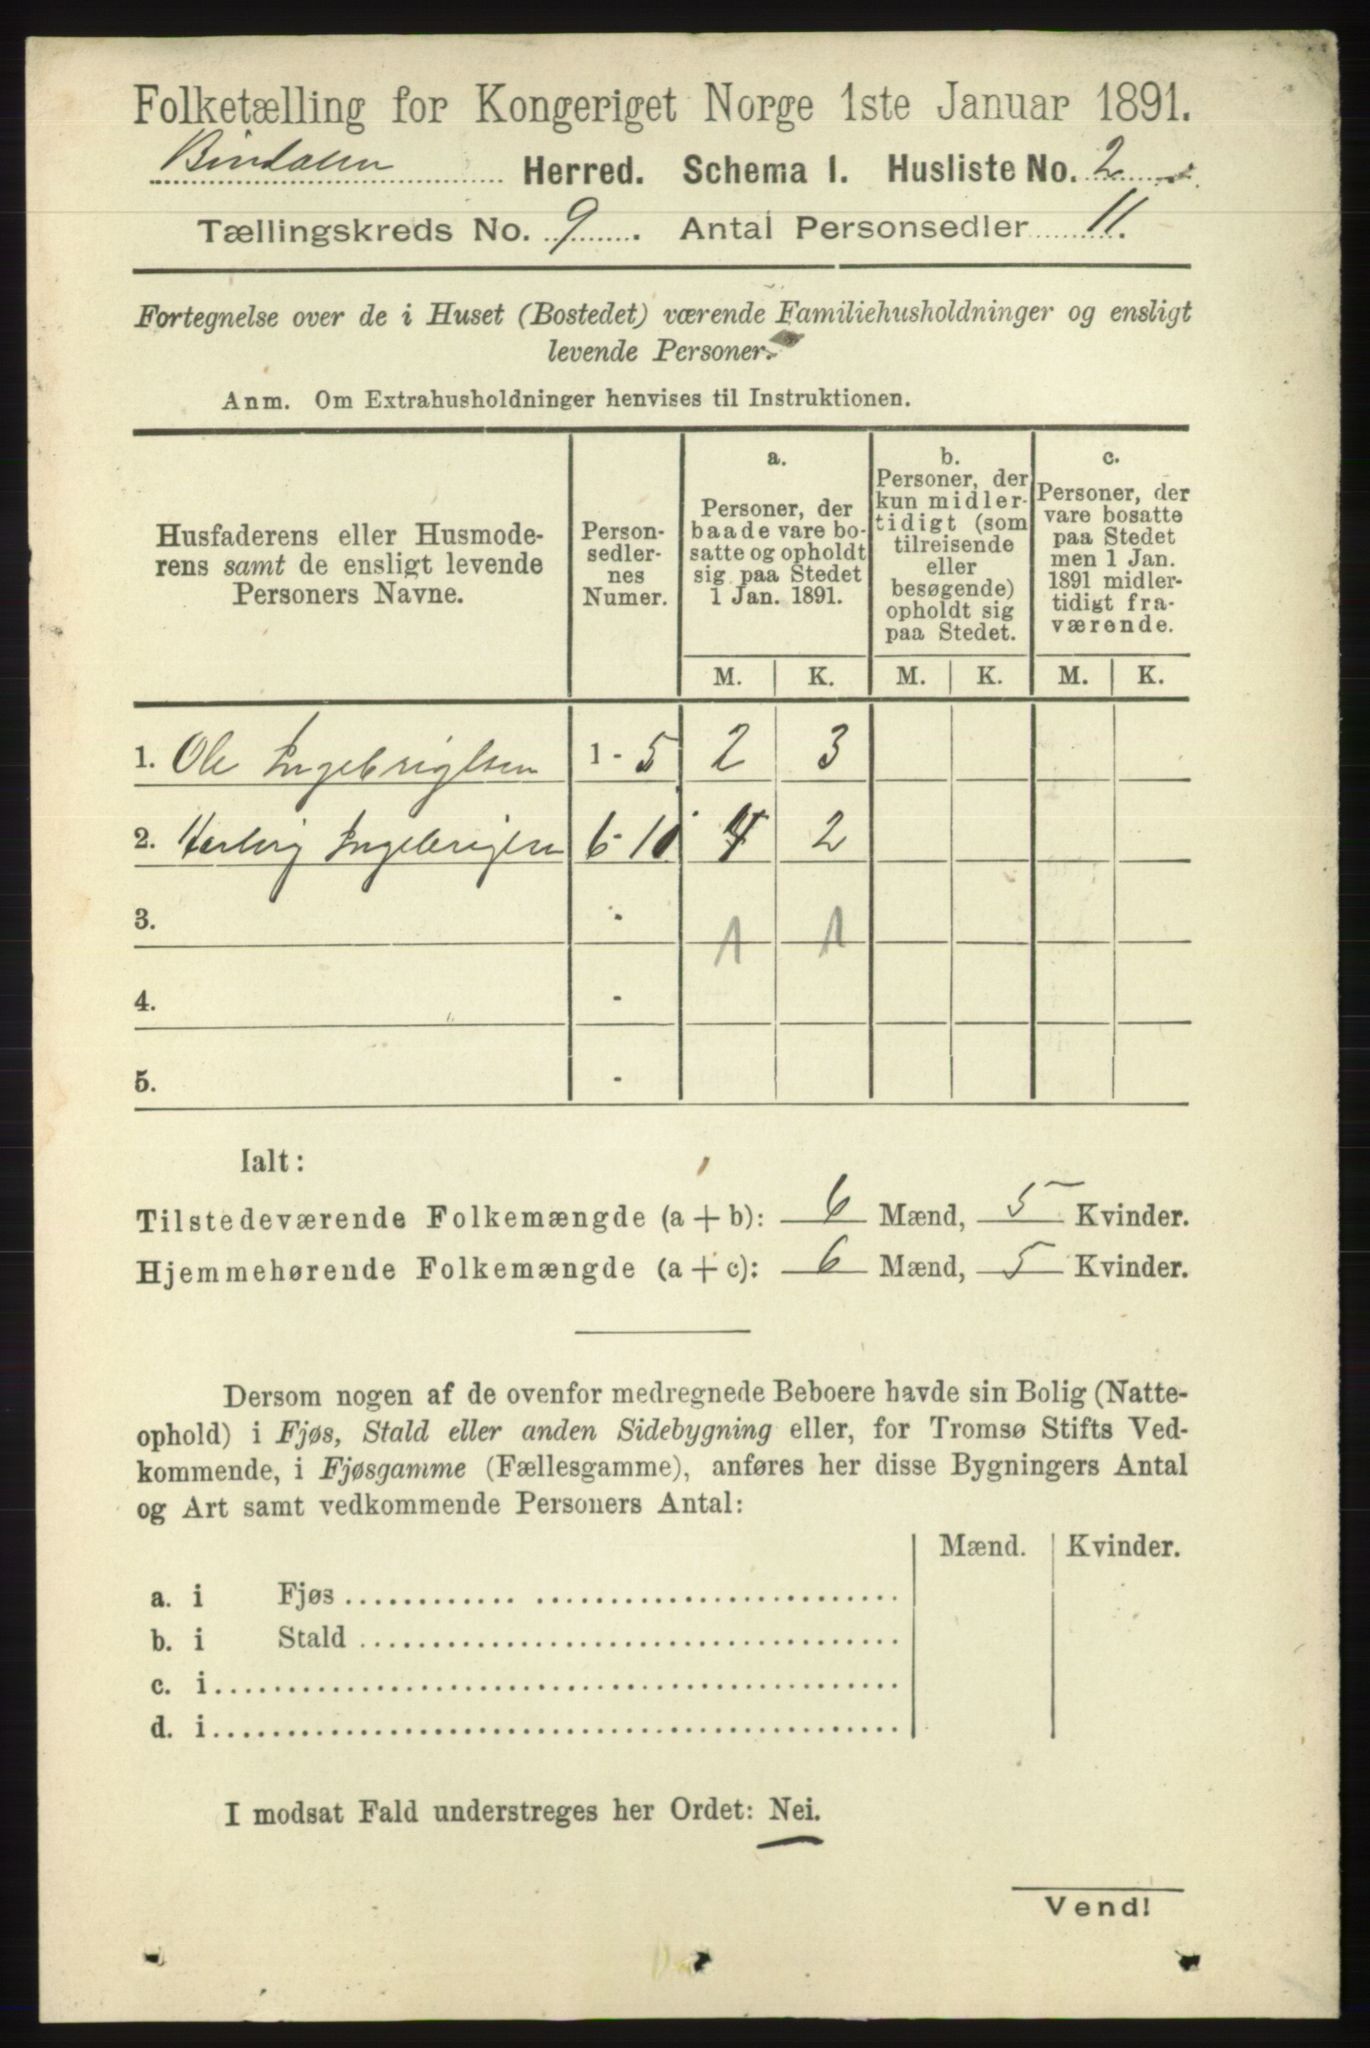 Folketælling for Kongeriget Norge 1ste Januar 1891.
Bindalen Herred. Schema I. Husliste No. 2
Tællingskreds No. 9. Antal Personsedler 11.
Fortegnelse over de i Huset (Bostedet) værende Familiehusholdninger og ensligt
levende Personer.
Anm. Om Extrahusholdninger henvises til Instruktionen.
Husfaderens eller Husmode-
rens samt de ensligt levende
Personers Navne.
Person-
sedler-
nes
Numer.
a.
Personer, der
baade vare bo-
satte og opholdt
sig paa Stedet
1 Jan. 1891.
b.
Personer, der
kun midler-
tidigt (som
tilreisende
eller
besøgende)
opholdt sig
paa Stedet.
c.
Personer, der
vare bosatte
paa Stedet
men 1 Jan.
1891 midler-
tidigt fra-
værende.
M. K. M. K. M. K.
1. Ole Ingebrigtsen 1 - 5 2 3
2. Ingebrigtsen 6 - 10 4 2
3. - 1 1
4. -
5. -
Ialt:
Tilstedeværende Folkemængde (a + b): 6 Mænd, 5 Kvinder.
Hjemmehørende Folkemængde (a + c): 6 Mænd, 5 Kvinder.
Dersom nogen af de ovenfor medregnede Beboere havde sin Bolig (Natte-
ophold) i Fjøs, Stald eller anden Sidebygning eller, for Tromsø Stifts Ved-
kommende, i Fjøsgamme (Fællesgamme), anføres her disse Bygningers Antal
og Art samt vedkommende Personers Antal:
Mænd. Kvinder.
a. i Fjøs
b. i Stald
c. i
d. i
I modsat Fald understreges her Ordet: Nei.
Vend!